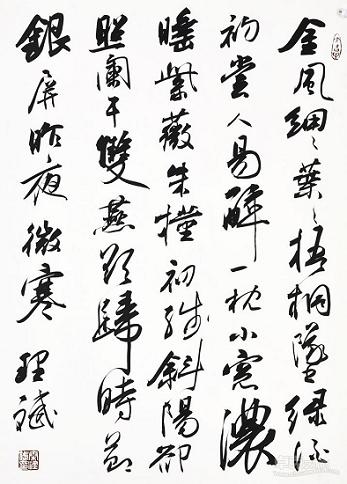 金風細〻葉〻梧桐墜緑酒
初嘗人易醉一枕小窓濃
睡紫薇朱槿初残斜陽卻
照闌干雙燕欲歸時節
銀屏昨夜微寒 理斌